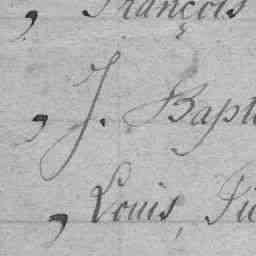 , François
, J. Bapt
, Louis,